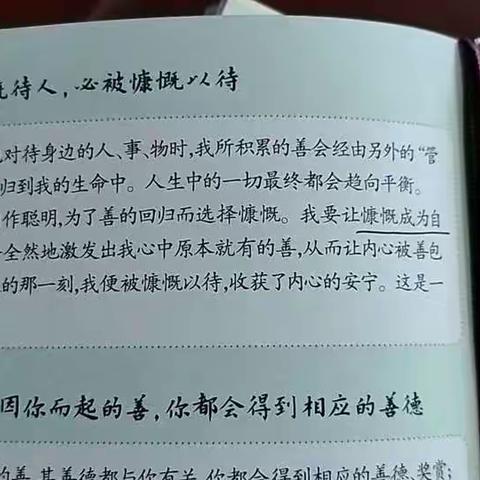 待人，必被慷慨以待
对待身边的人、事、物时，我所积累的善会经由另外的“管
归到我的生命中。人生中的一切最终都会趋向平衡。
作聪明，为了善的回归而选择慷慨。我要让慷慨成为自
全然地激发出我心中原本就有的善，从而让内心被善包
的那一刻，我便被慷慨以待，收获了内心的安宁。这是一
因你而起的善，你都会得到相应的善德
的善，其善德都与你有关，你都会得到相应的善德、奖赏；